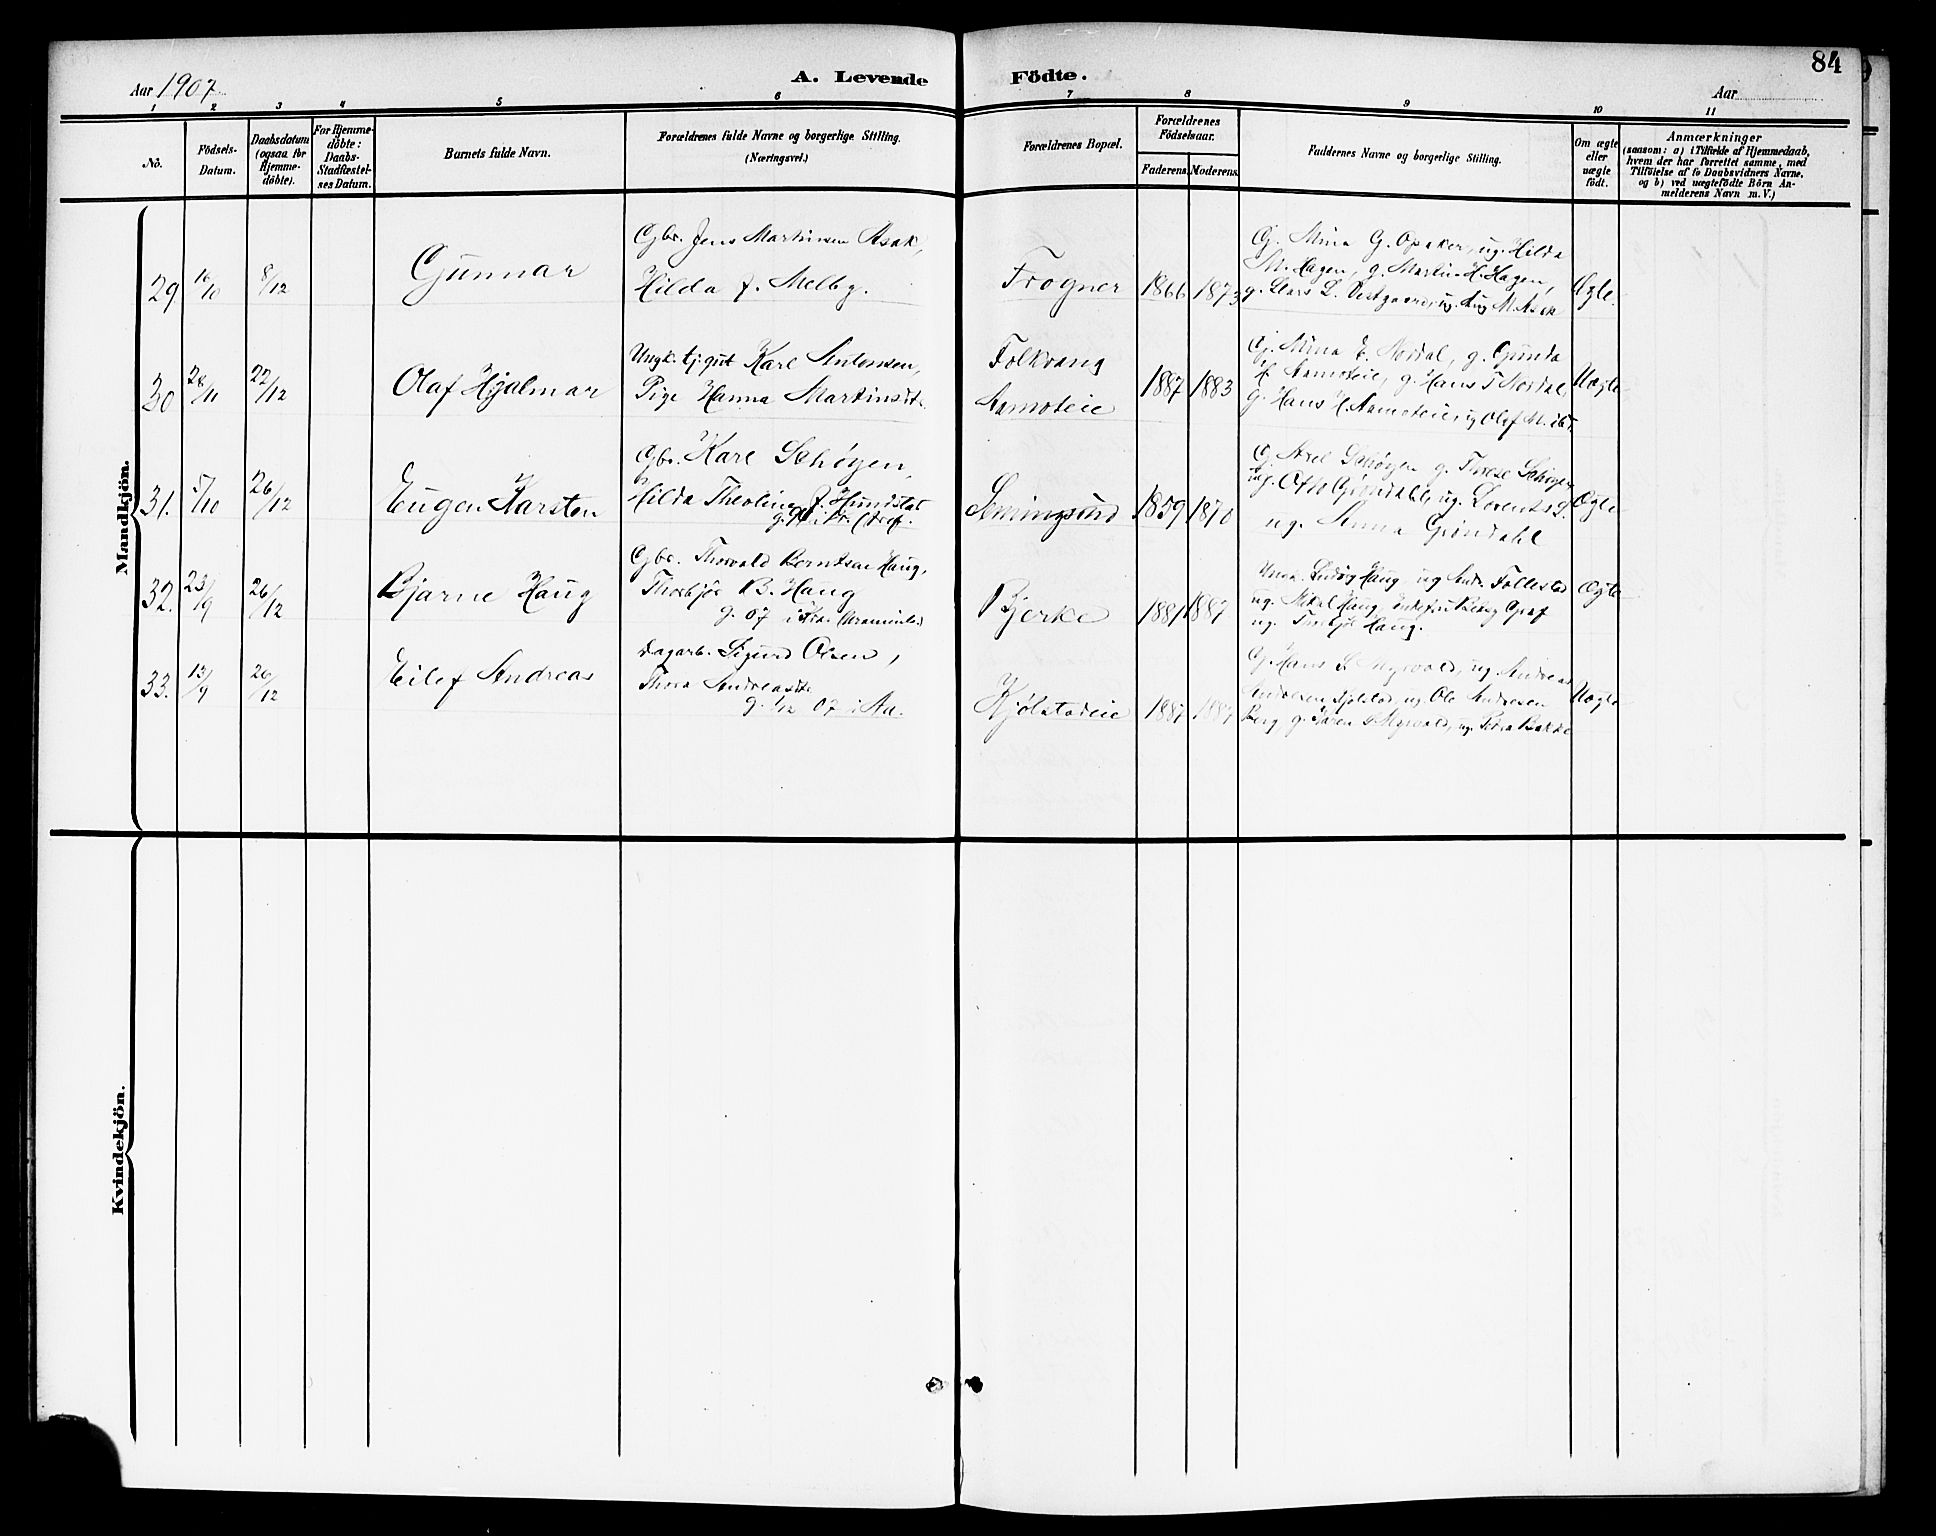 84
Aar 1907
A. Levende Födte.
Aar
1 2 3 4 5 6 7 8 9 10 11
No.
Födsels-
Datum.
Daabsdatum
(ogsaa for
Hjemme-
döbte).
For Hjemme-
döbte:
Daabs-
Stadfæstel-
ses Datum.
Barnets fulde Navn.
Forældrenes fulde Navne og borgerlige Stilling.
(Næringsvei.)
Forældrenes Bopæl.
Forældrenes
Födselsaar.
Faderens. Moderens.
Faddernes Navne og borgerlige Stilling.
Om ægte
eller
uægte
födt.
Anmærkninger
(saasom: a) i Tilfælde af Hjemmedaab,
hvem der har forrettet samme, med
Tilföielse af to Daabsvidners Navne,
og b) ved uægtefödte Börn An-
melderens Navn m.V.)
Mandkjön.
29
16/10
8/12
Gunnar
Gbr. Jens Martinsen Asak,
Hilda f. Melby.
Frogner
1866 1873
Gj. Mina G. Opaker, ug. Hilda
M. Hagen, g. Martin H. Hagen,
g. Lars L. Vestgaard, ug. Aug M. Asak
Ægte.
30
28/11
22/12
Olaf Hjalmar
Ungk. tj.gut Karl Antonsen,
Pige Hanna Martinsdt.
Folkvang
Aamoteie
1887 1883
Gj. Mina E. Nordal, g. Gunda
H. Aamoteie, g. Hans T. Nordal,
g. Hans H. Aamoteie, ug Olaf M.
Uægte
31.
5/10
26/12
Eugen Karsten
Gbr. Karl Schøyen,
Hilda Theoline f. Hundstad
Semingsund
1859 1870
G. Axel Schøyen g. Therese Schøyen
ug. Otto Grøndahl, ug. Lorents G.
ug. Anna Grøndahl
Ægte
32.
23/9
26/12
Bjarne Haug
Gbr. Thorvald Berntsen Haug,
Thorbjør B. Haug
g. 07 i Kra.
Bjerke
1881 1887
Ungk. Ludvig Haug, ug Andr. Follestad
ug. Mikal Haug, Enkefru Betsy Graf
ug. Thorbjør Haug.
Ægte
33.
13/9
26/12
Eilef Andreas
Dagarb. Sigurd Olsen,
Thora Andreasdt.
g. 1/12 07 i Aa.
Kjølstadeie
1887 1887
Gj. Hans L. Myrvold, ug. Andreas
Andresen Kjølstad, ug. Ole Andresen
Berg, g. Karen S. Myrvold, ug. Thora Bakke
Uægte
Kvindekjön.